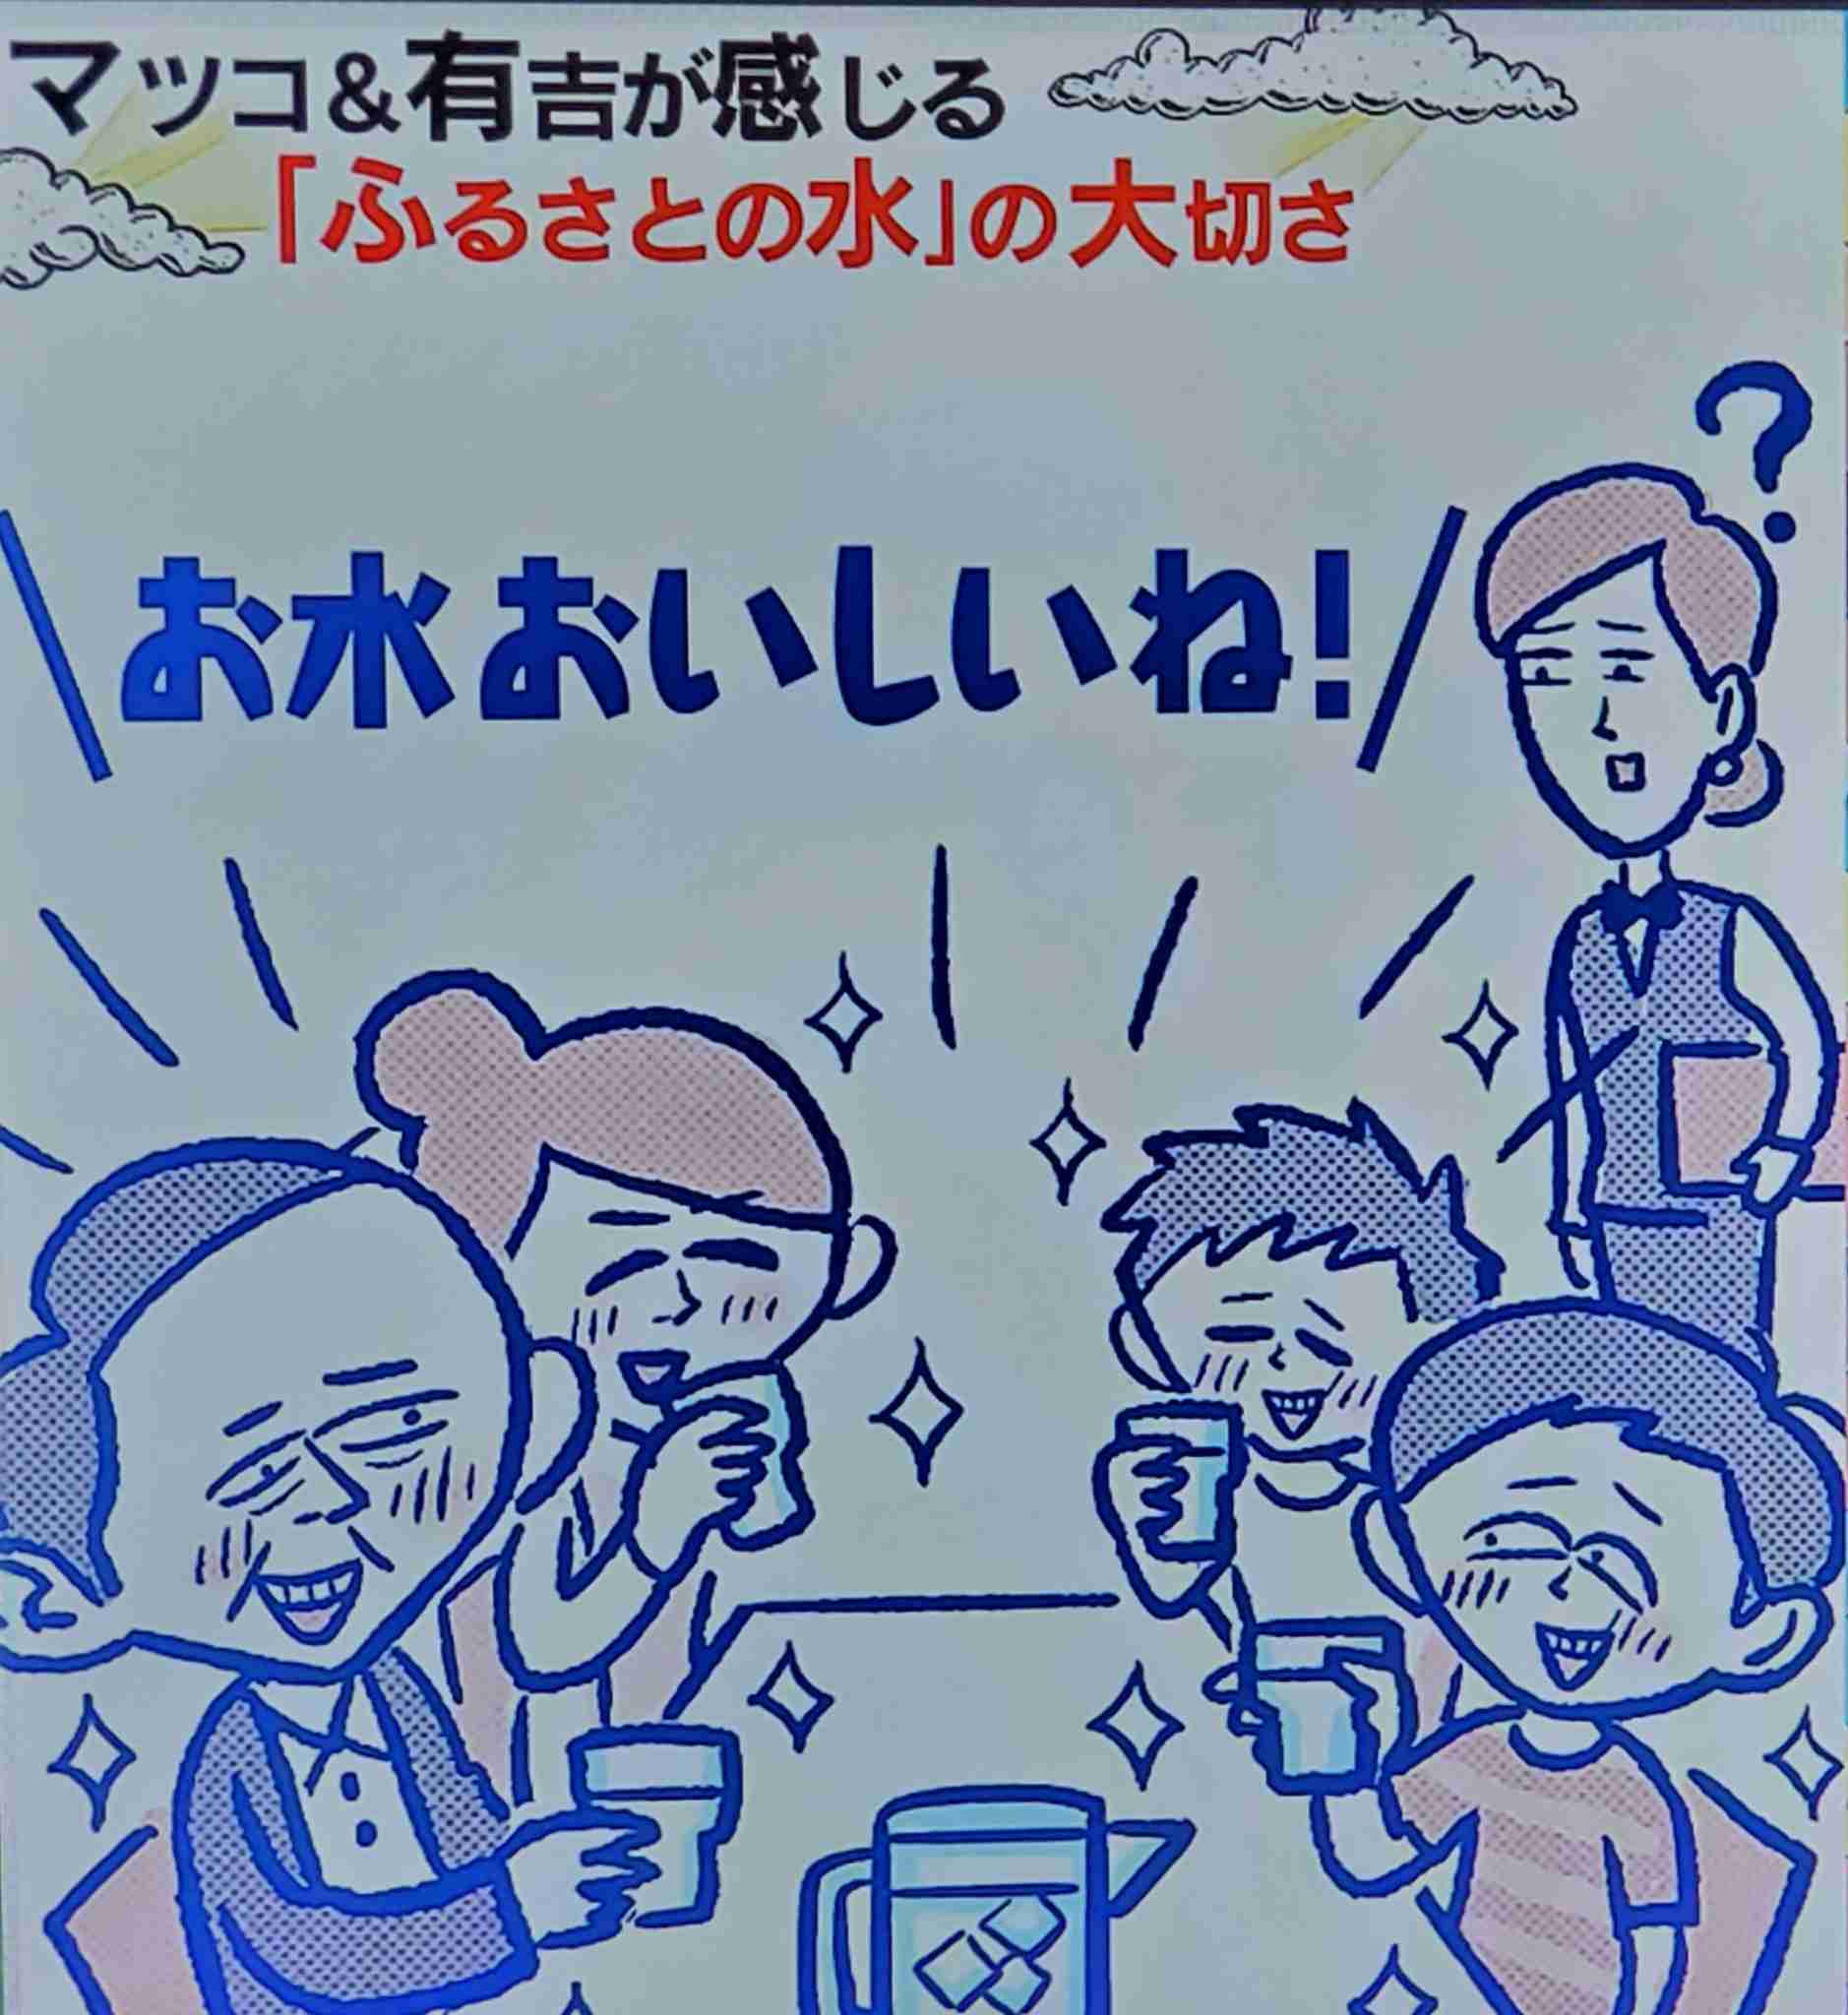 マツコ&有吉が感じる
「ふるさとの水」の大切さ
?
お水おいしいね!